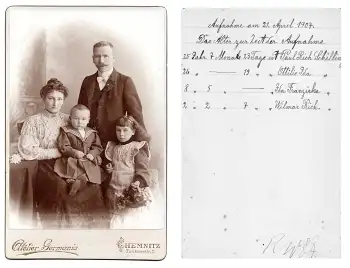 Atelier Germania
CHEMNITZ
Aufnahme am 21. April 1907.
Das Alter zur Zeit der Aufnahme
25 Jahr 7 Monate 23 Tage ist Paul Rich. Schilling
26 „ — 19 „ „ Ottilie Ida „
8 „ 5 — „ Ida Franziska „
2 „ 2 „ 7 „ „ Wilmar Rich. „